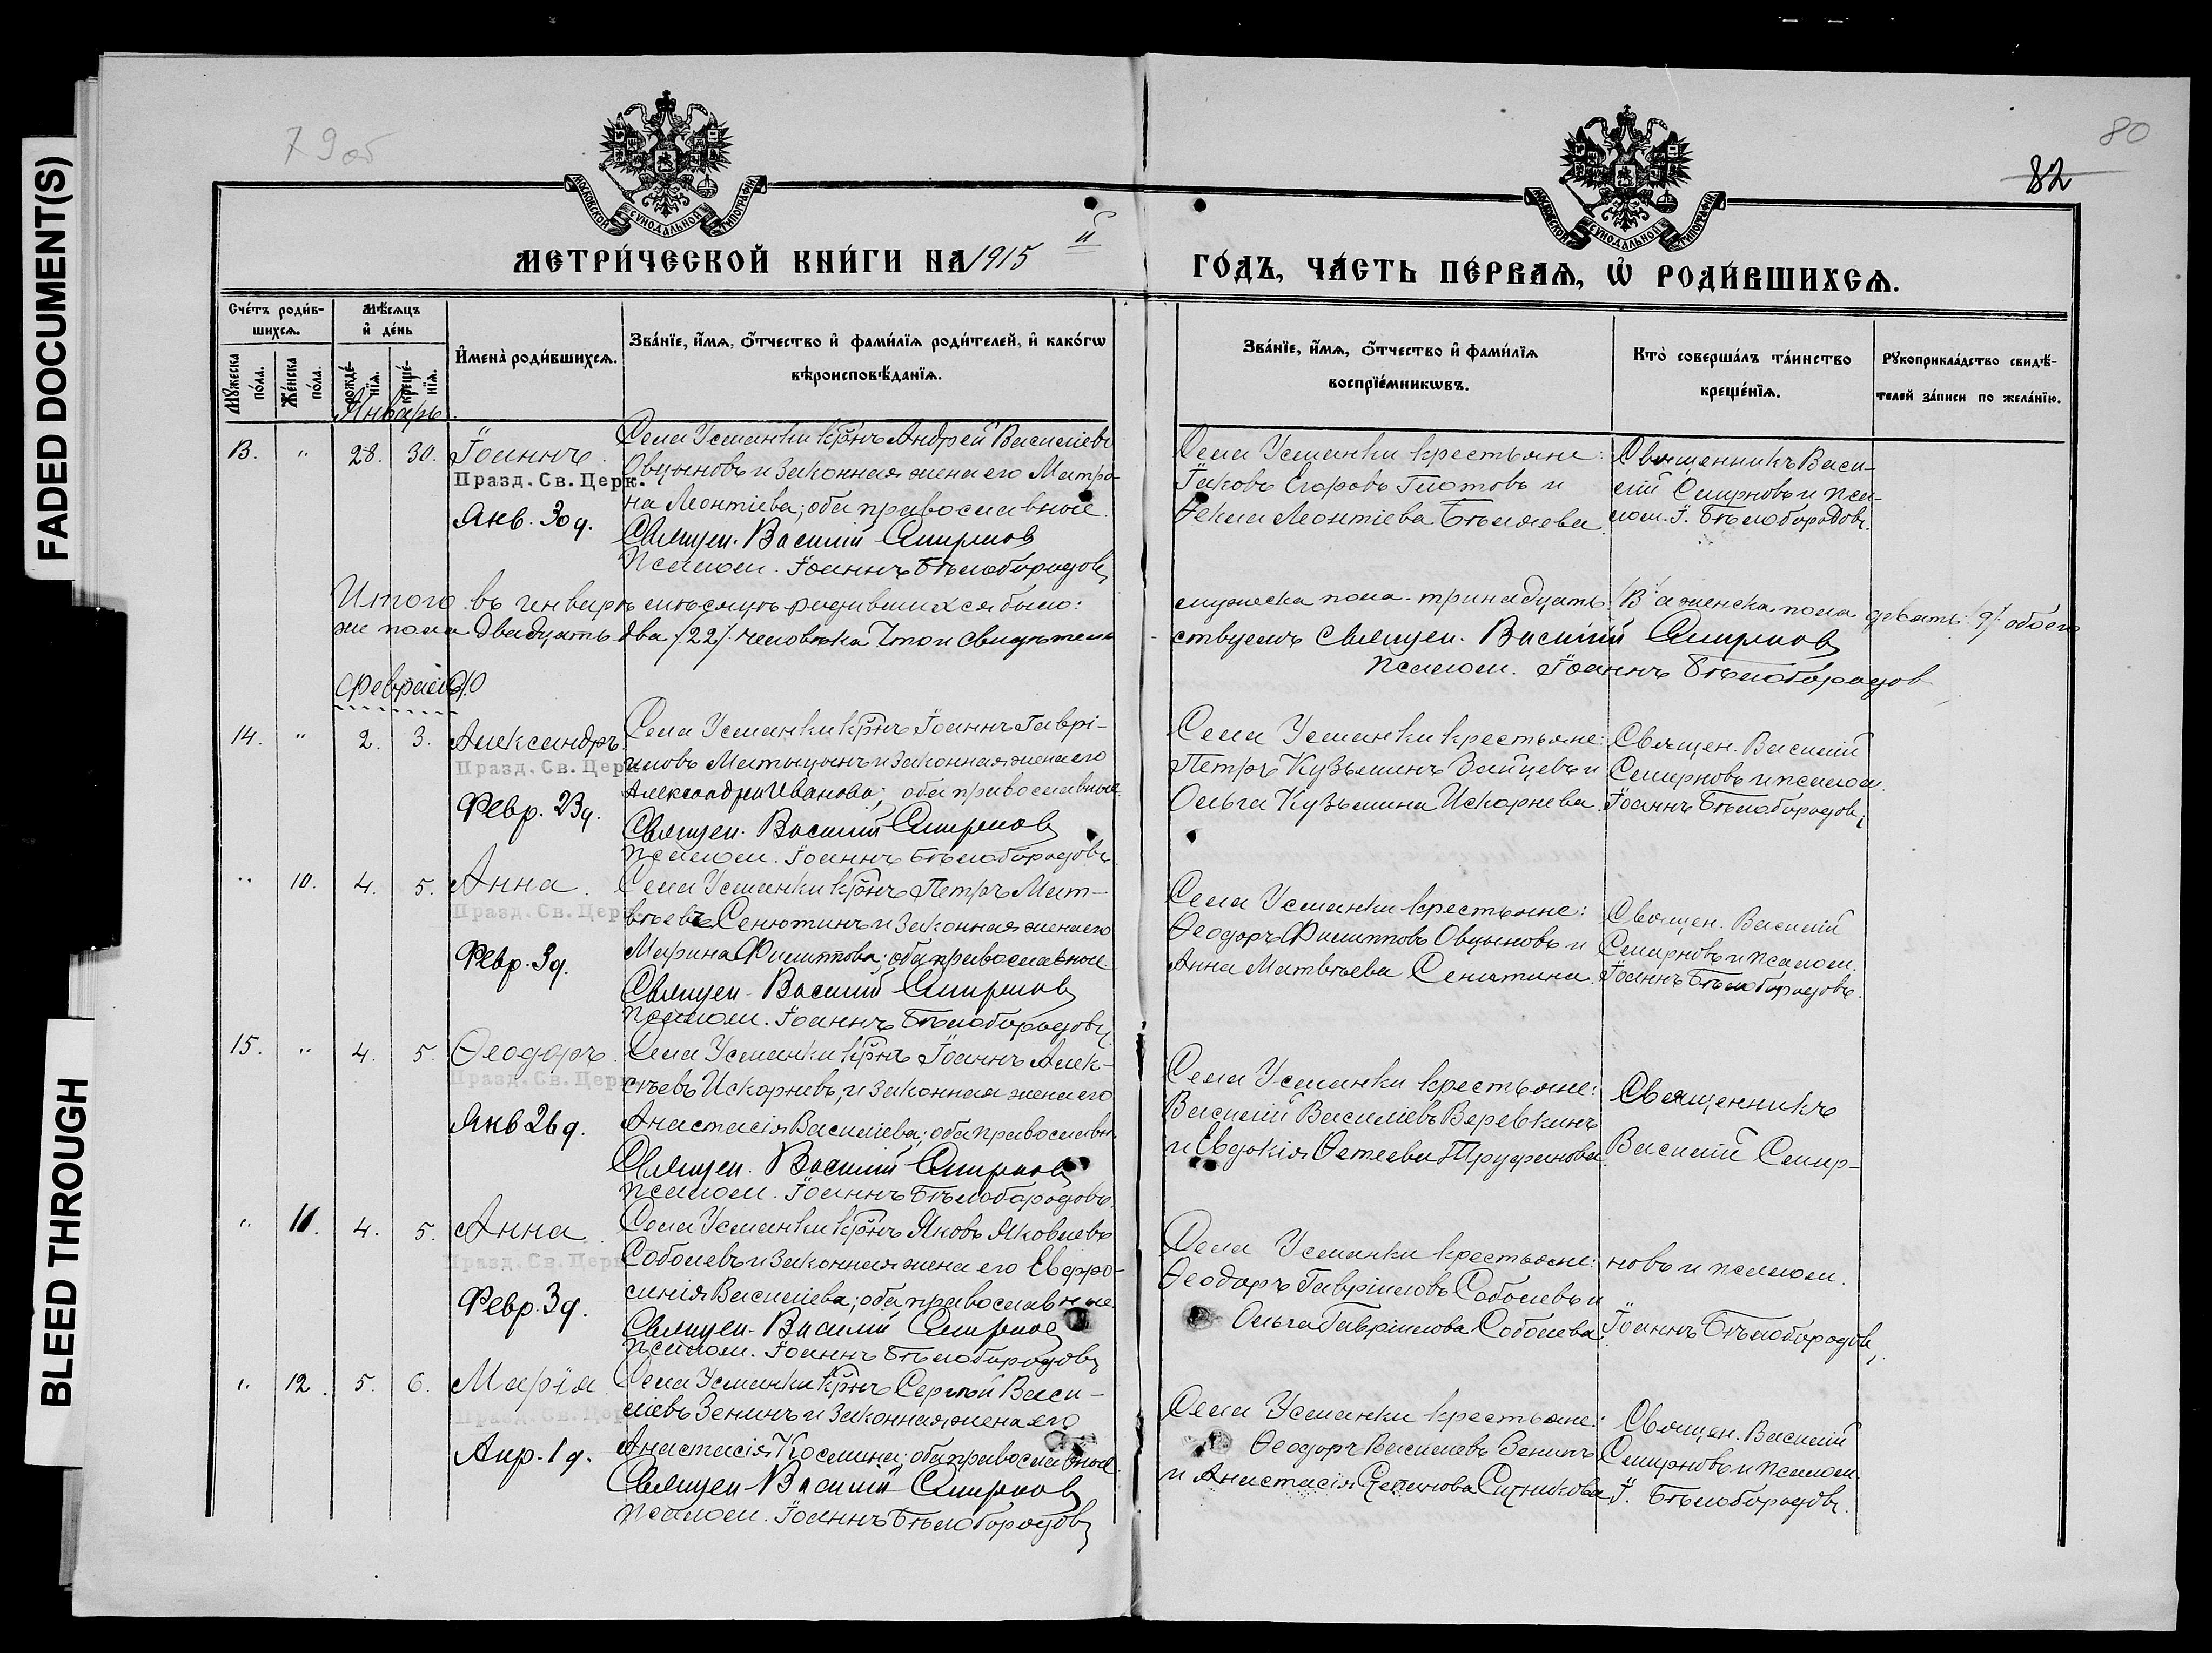 FADED DOCUMENT(S)
BLEED THROUGH
79 об
80
82
МОСКОВСКОЙ СѴНОДАЛЬНОЙ ТИПОГРАФІИ
МОСКОВСКОЙ СѴНОДАЛЬНОЙ ТИПОГРАФІИ
МЕТРИ́ЧЕСКОЙ КНИ́ГИ НА 1915 й
ГО́ДЪ, ЧА́СТЬ ПЕ́РВАѦ, Ѡ РОДИ́ВШИХСѦ.
Сче́тъ роди́в-
шихсѧ.
Мꙋ́жеска по́ла.
Же́нска по́ла.
Мѣ́сѧцъ
и҆ де́нь
рожде́-нїѧ.
креще́-нїѧ.
И҆мена̀ роди́вшихсѧ.
Зва́нїе, и҆́мѧ, ѻ҆́тчество и҆ фами́лїѧ роди́телей, и҆ како́гѡ
вѣроисповѣ́данїѧ.
Зва́нїе, и҆́мѧ, ѻ҆́тчество и҆ фами́лїѧ
воспрїе́мникѡвъ.
Кто̀ соверша́лъ та́инство
креще́нїѧ.
Рꙋкоприкла́дство свидѣ́-
телей за́писи по жела́нїю.
Январь.
13. " 28. 30. Іоаннъ.
Празд. Св. Церк.
Янв. 30 д.
Села Усманки кр-нъ Андрей Василіевъ
Овцыновъ и законная жена его Матро-
на Леонтіева; оба православные.
Священ. Василій Смирновъ
Псалом. Іоаннъ Бѣлобородовъ
Села Усманки крестьяне:
Іаковъ Егоровъ Глотовъ и
Ѳекла Леонтіева Бѣляева.
Священникъ Васи-
лій Смирновъ и пса-
лом. І. Бѣлобородовъ.
Итого въ январѣ мѣсяцѣ родившихся было:
мужеска пола - тринадцать /13/ а женска пола девять /9/ обоего
же пола двадцать два /22/ человѣка Въ томъ свидѣтель-
ствуемъ Священ. Василій Смирновъ
Псалом. Іоаннъ Бѣлобородов
Февраль.
14. " 2. 3. Александръ.
Празд. Св. Церк.
Февр. 23 д.
Села Усманки кр-нъ Іоаннъ Гаврі-
иловъ Матыцынъ и законная жена его
Александра Иванова; оба православные
Священ. Василій Смирновъ
Псалом. Іоаннъ Бѣлобородовъ.
Села Усманки крестьяне:
Петръ Кузьминъ Зайцевъ и
Ольга Кузьмина Искорнева.
Священ. Василій
Смирновъ и псалом.
Іоаннъ Бѣлобородовъ,
" 10. 4. 5. Анна.
Празд. Св. Церк.
Февр. 3 д.
Села Усманки кр-нъ Петръ Мат-
вѣевъ Сенютинъ и законная жена его
Марина Филиппова; оба православные
Священ. Василій Смирновъ
Псалом. Іоаннъ Бѣлобородовъ
Села Усманки крестьяне:
Ѳеодоръ Филипповъ Овцыновъ и
Анна Матвѣева Сенютина.
Священ. Василій
Смирновъ и псалом.
Іоаннъ Бѣлобородовъ.
15. " 4. 5. Ѳеодоръ.
Празд. Св. Церк.
Янв 26 д.
Села Усманки кр-нъ Іоаннъ Алек-
сѣевъ Искорневъ, и законная жена его
Анастасія Василіева; оба православн.
Священ. Василій Смирновъ
Псалом. Іоаннъ Бѣлобородовъ
Села Усманки крестьяне:
Василій Василіевъ Веревкинъ
и Евдокія Труфанова.
Священникъ
Василій Смир-
" 11. 4. 5. Анна.
Празд. Св. Церк.
Февр. 3 д.
Села Усманки кр-нъ Яковъ Яковлевъ
Соболевъ и законная жена его Евфро-
синія Василіева; оба православные
Священ. Василій Смирнов
Псалом. Іоаннъ Бѣлобородовъ
Села Усманки крестьяне:
Ѳеодоръ Гавріиловъ Соболевъ и
Ольга Гавріилова Соболева.
новъ и псалом.
Іоаннъ Бѣлобородовъ,
" 12. 5. 6. Марія.
Празд. Св. Церк.
Апр. 1 д.
Села Усманки кр-нъ Сергѣй Васи-
ліевъ Зенинъ и законная жена его
Анастасія Космина; оба православные.
Священ Василій Смирновъ
Псалом. Іоаннъ Бѣлобородовъ
Села Усманки крестьяне:
Ѳеодоръ Василіевъ Зенинъ
и Анастасія Степанова Ситникова
Священ. Василій
Смирновъ и псалом.
І. Бѣлобородовъ.